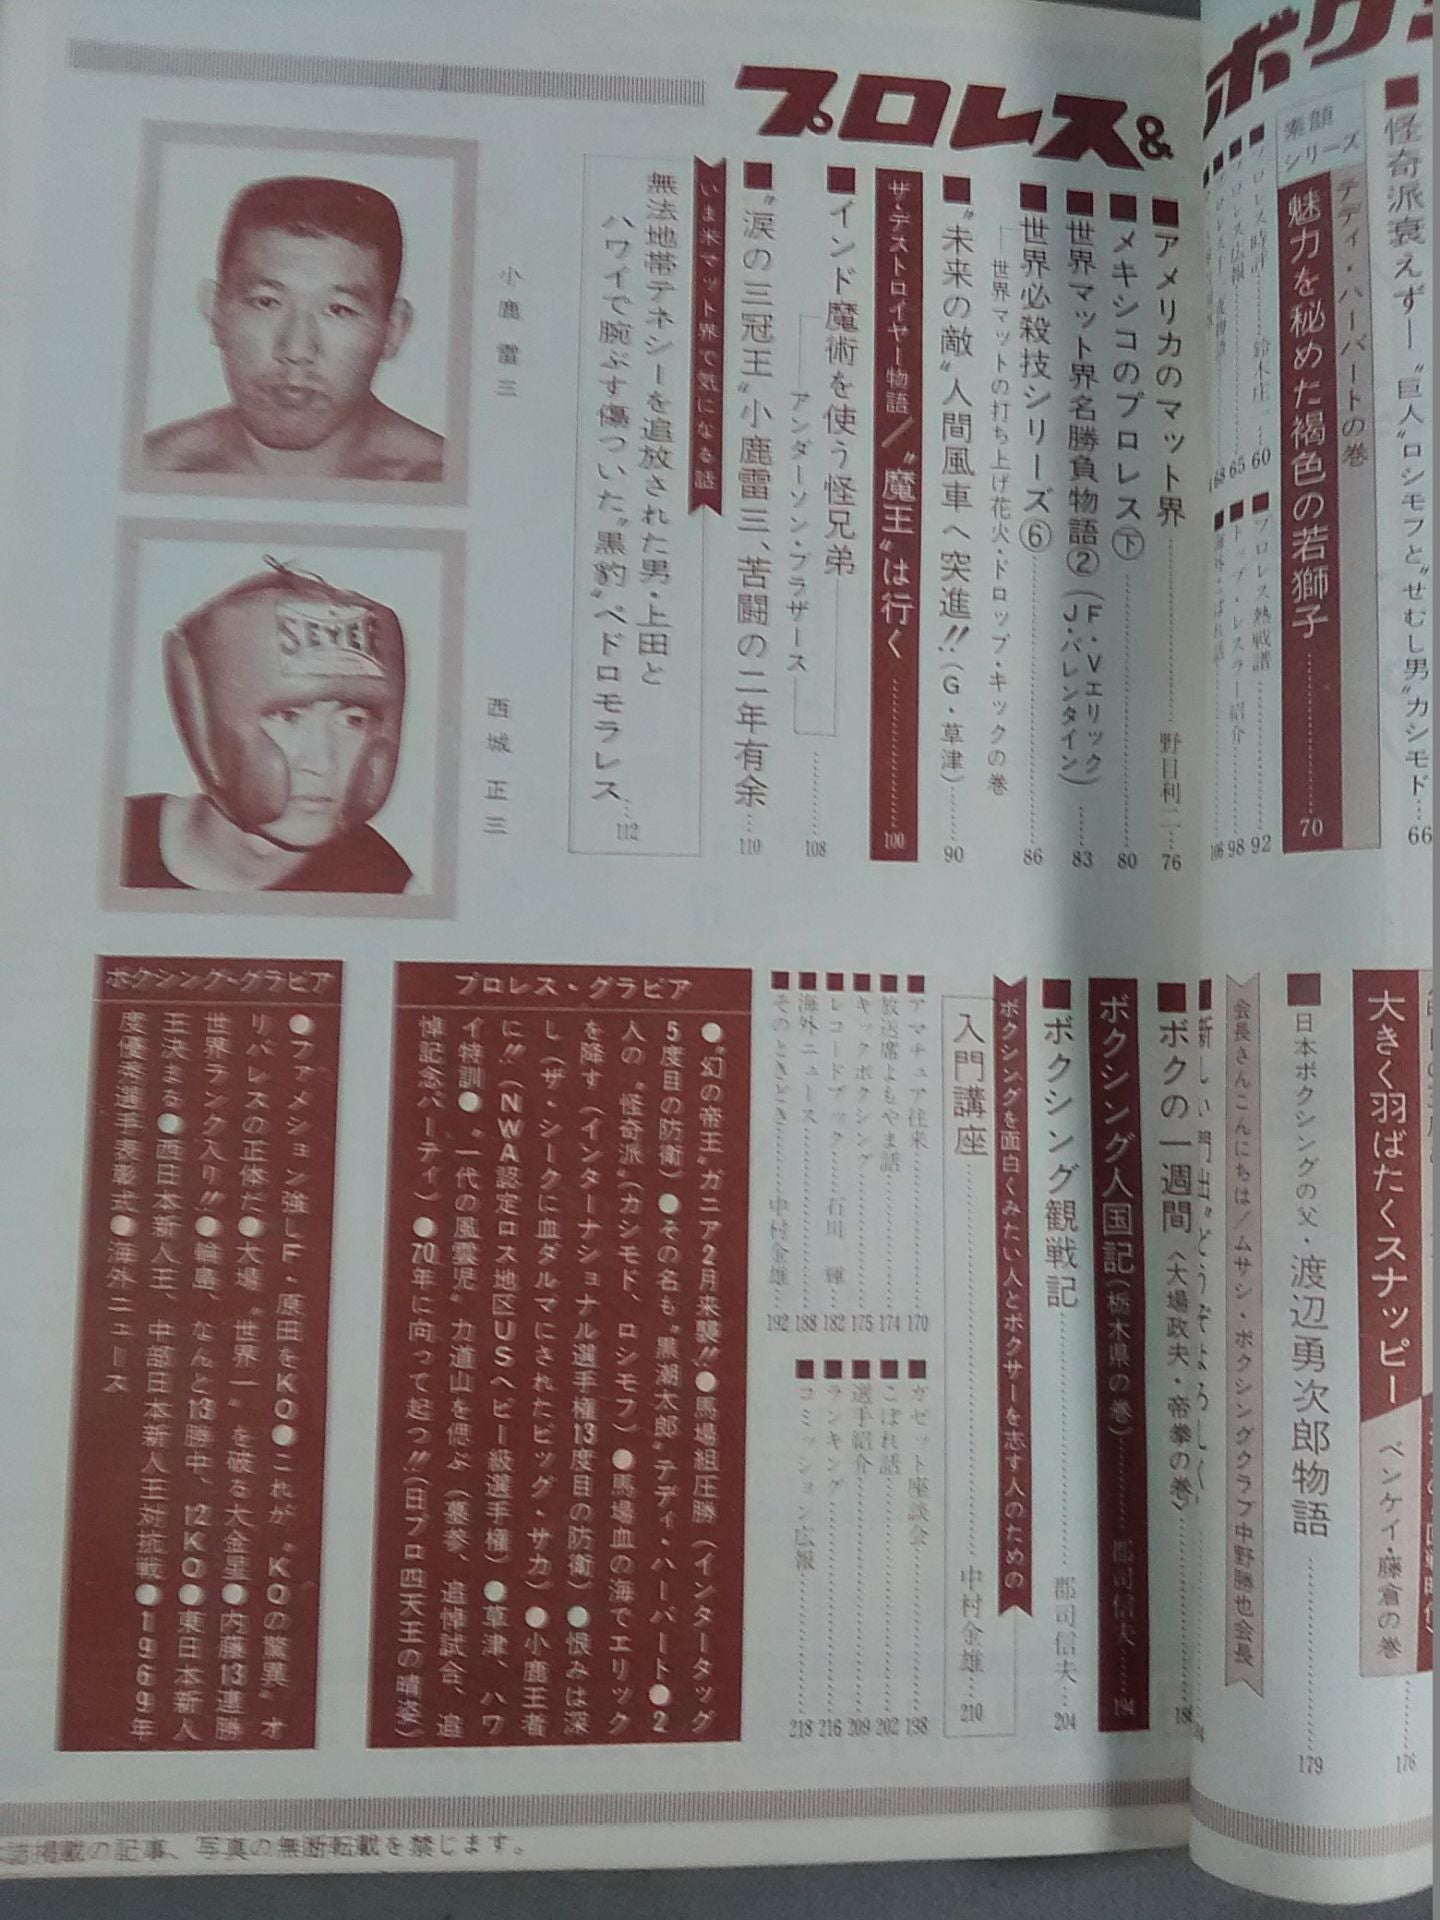 プロレス&
ボク
■怪奇派衰えず—〝巨人〟ロシモフと〝せむし男〟カシモド…66
素顔シリーズ
テディ・ハーバートの巻
魅力を秘めた褐色の若獅子……70
プロレス時評……鈴木庄一…60
■プロレス広報……65
68
■プロレス熱戦譜……92
■トップ・レスラー紹介……98
■海外こぼれ話……106
■アメリカのマット界……野目利二…76
■メキシコのプロレス㊦……80
■世界マット界名勝負物語②(F・Vエリック)(J・バレンタイン)……83
■世界必殺技シリーズ⑥……86
世界マットの打ち上げ花火・ドロップ・キックの巻
■〝未来の敵〟人間風車へ突進!!(G・草津)……90
ザ・デストロイヤー物語/〝魔王〟は行く……100
■インド魔術を使う怪兄弟……108
アンダーソン・ブラザース
■〝涙の三冠王〟小鹿雷三、苦闘の二年有余…110
いま米マット界で気になる話
無法地帯テネシーを追放された男・上田と
ハワイで腕ぶす傷ついた〝黒豹〟ペドロモラレス…112
小鹿雷三
西城正三
大きく羽ばたくスナッピー
ベンケイ・藤倉の巻……176
■日本ボクシングの父・渡辺勇次郎物語……179
会長さんこんにちは/ムサシ・ボクシングクラブ中野勝也会長
■新しい門出〝どうぞよろしく〟
■ボクの一週間〈大場政夫・帝拳の巻〉……186
ボクシング人国記(栃木県の巻)……郡司信夫…194
■ボクシング観戦記……郡司信夫…204
ボクシングを面白くみたい人とボクサーを志す人のための
入門講座……中村金雄…210
■アマチュア往来……170
■放送席よもやま話……174
■キックボクシング……175
■レコードブック……石川輝…182
■海外ニュース……188
■そのときどき……中村金雄…192
■ガゼット座談会……198
■こぼれ話……202
■選手紹介……209
■ランキング……216
■コミッション広報……218
プロレス・グラビア
●〝幻の帝王〟ガニア2月来襲!!●馬場組圧勝(インタータッグ
5度目の防衛)●その名も〝黒潮太郎〟テディ・ハーバート●2
人の〝怪奇派〟(カシモド、ロシモフ)●馬場血の海でエリック
を降す(インターナショナル選手権13度目の防衛)●恨みは深
し(ザ・シークに血ダルマにされたビッグ・サカ)●小鹿王者
に!!(NWA認定ロス地区USヘビー級選手権)●草津、ハワ
イ特訓●〝一代の風雲児〟力道山を偲ぶ(墓参、追悼試合、追
悼記念パーティ)●70年に向って起つ!!(日プロ四天王の晴姿)
ボクシング・グラビア
●ファメション強しF・原田をKO●これが〝KOの驚異〟オ
リバレスの正体だ●大場〝世界一〟を破る大金星●内藤13連勝
世界ランク入り!!●輪島、なんと13勝中、12KO●東日本新人
王決まる●西日本新人王、中部日本新人王対抗戦●1969年
度優秀選手表彰式●海外ニュース
本誌掲載の記事、写真の無断転載を禁じます。